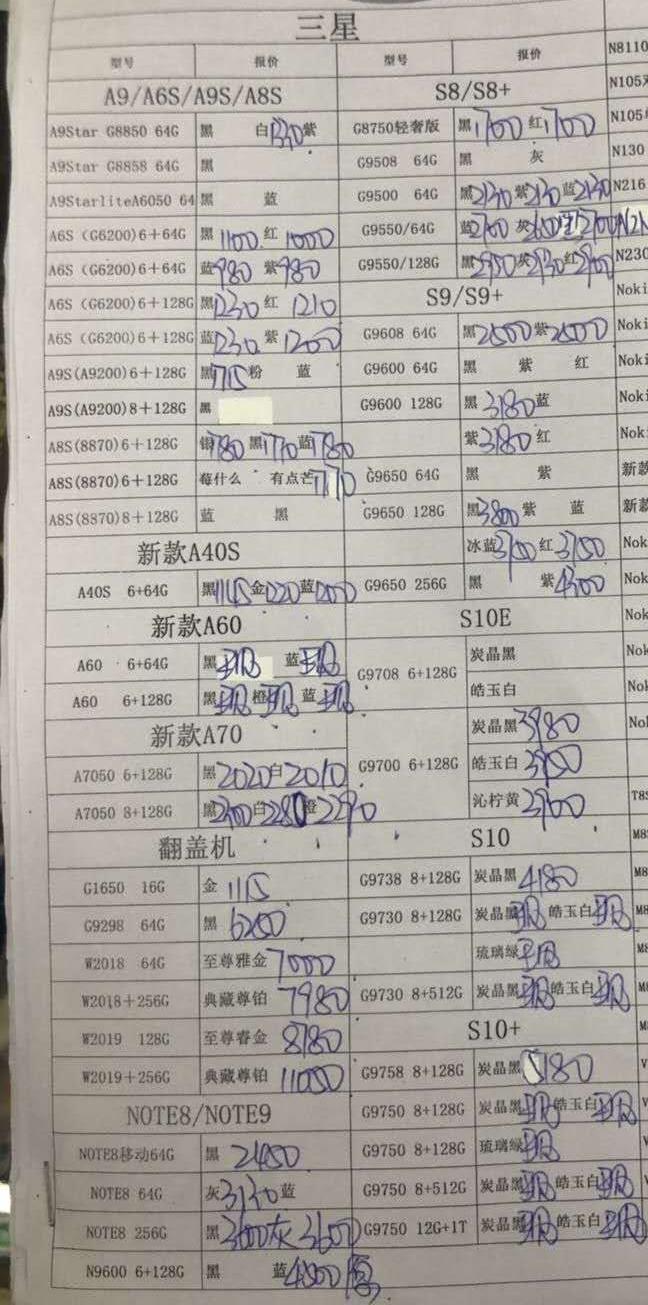 三星
型号 报价 型号 报价 N8110
A9/A6S/A9S/A8S S8/S8+
A9Star G8850 64G 黑 白1330紫 G8750轻奢版 黑1700 红1700
A9Star G8858 64G 黑 G9508 64G 黑 灰 N130
A9StarliteA6050 64 黑 蓝 G9500 64G 黑2130 紫2130 蓝2130 N216
A6S (G6200)6+64G 黑1100 红1000 G9550/64G 蓝2700 灰
A6S (G6200)6+64G 蓝980 紫980 G9550/128G 黑2950 灰 红 N230
A6S (G6200)6+128G 黑1230 红 1210 S9/S9+ Noki
A6S (G6200)6+128G 蓝1230 紫1200 G9608 64G 黑2500 紫2500 Noki
A9S(A9200)6+128G 黑1715 粉 蓝 G9600 64G 黑 紫 红 Noki
A9S(A9200)8+128G 黑 G9600 128G 黑3180 蓝 Noki
A8S(8870)6+128G 银1780 黑1770 蓝1780 紫3180 红 Nok
A8S(8870)6+128G 莓什么 有点芒1770 G9650 64G 黑 紫 新款
A8S(8870)8+128G 蓝 黑 G9650 128G 黑3800 紫 蓝 新款
新款A40S 冰蓝3750 红3750 Nok
A40S 6+64G 黑1115 金1220 蓝1200 G9650 256G 黑 紫4300 Nok
新款A60 S10E Nok
A60 6+64G 黑 蓝 G9708 6+128G 炭晶黑 Nok
A60 6+128G 黑 橙 蓝 皓玉白 Nok
新款A70 炭晶黑3980 Nol
A7050 6+128G 黑2020 白2010 G9700 6+128G 皓玉白3900
A7050 8+128G 黑2300 白2280 橙2290 沁柠黄3900 T8S
翻盖机 S10
G1650 16G 金 1115 G9738 8+128G 炭晶黑4180 M8
G9298 64G 黑 6200 G9730 8+128G 炭晶黑 皓玉白
W2018 64G 至尊雅金7000 琉璃绿
W2018+256G 典藏尊铂 7980 G9730 8+512G 炭晶黑 皓玉白
W2019 128G 至尊睿金 8780 S10+
W2019+256G 典藏尊铂 11050 G9758 8+128G 炭晶黑5180 V
NOTE8/NOTE9 G9750 8+128G 炭晶黑 皓玉白 V
NOTE8移动64G 黑 2450 G9750 8+128G 琉璃绿 V
NOTE8 64G 灰3130 蓝 G9750 8+512G 炭晶黑 皓玉白 V
NOTE8 256G 黑3600 灰3600 G9750 12G+1T 炭晶黑 皓玉白
N9600 6+128G 黑 蓝4300